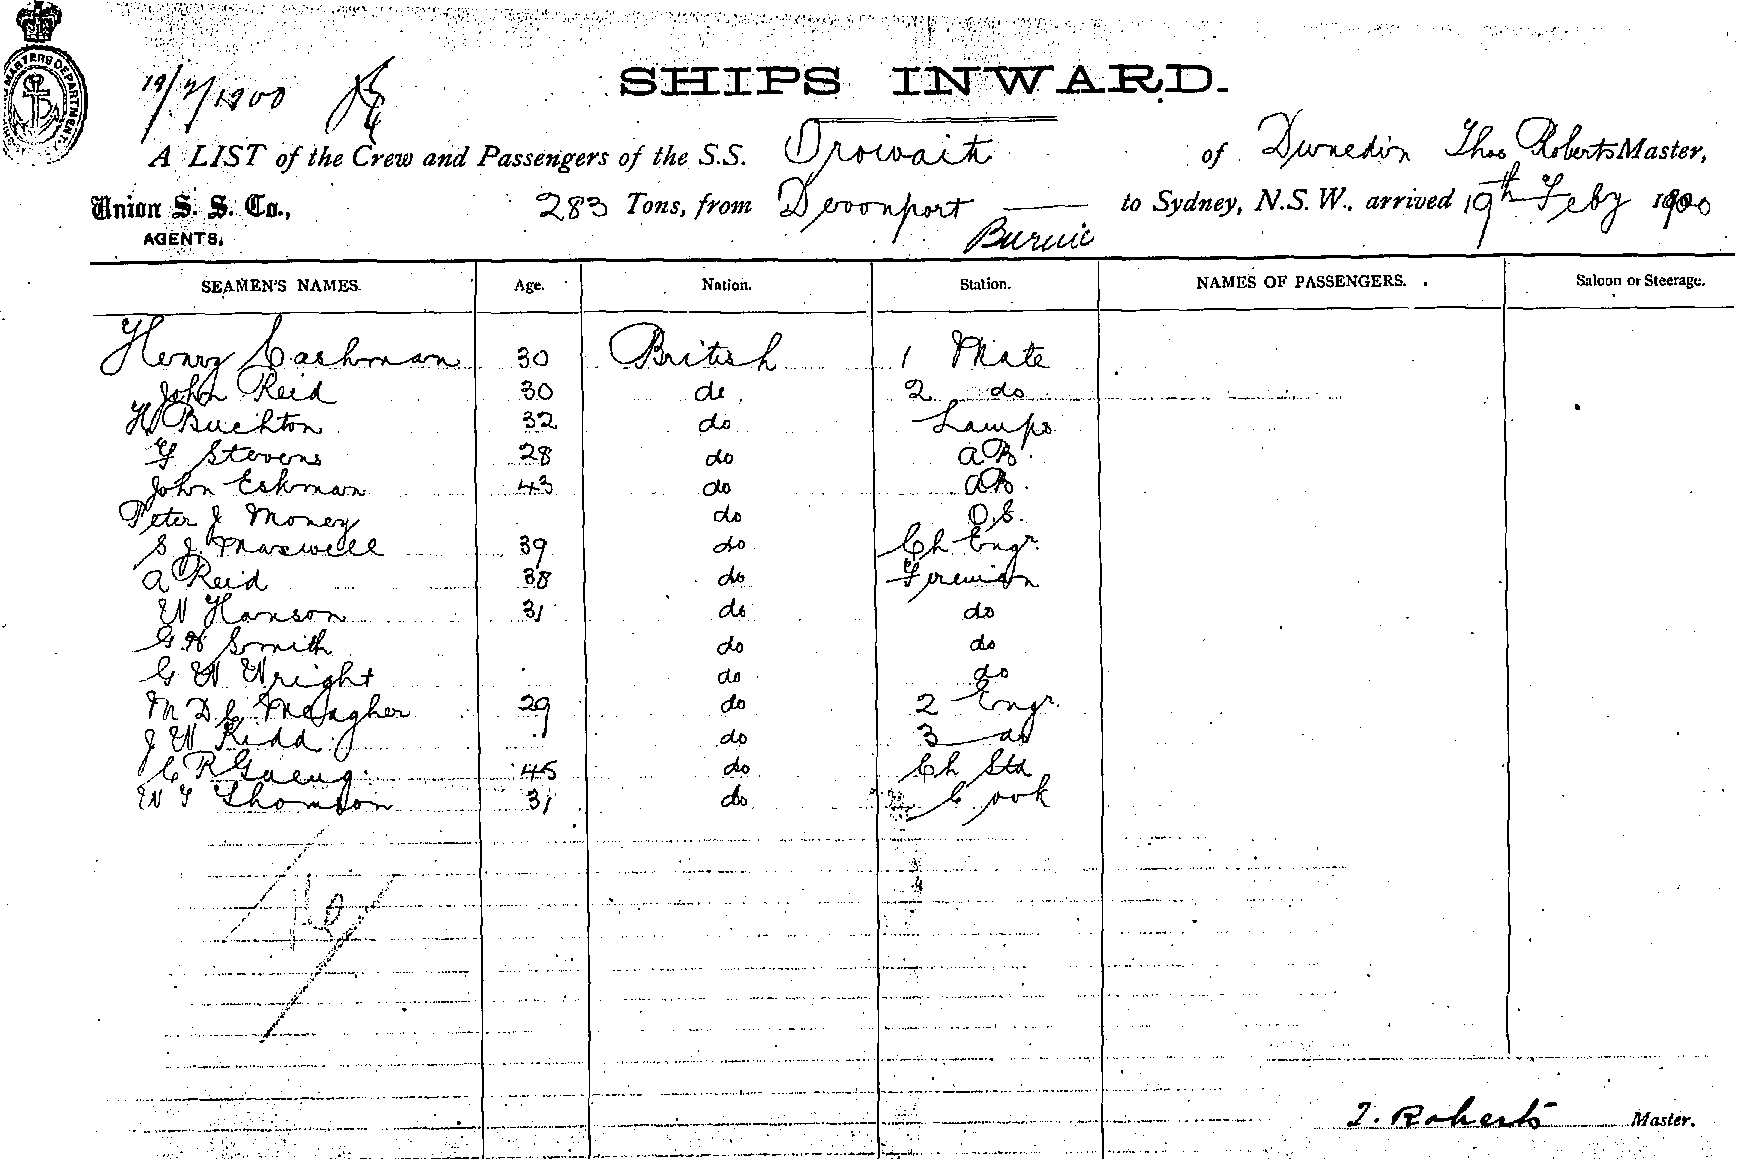 19/2/1900
SHIPS INWARD.
A LIST of the Crew and Passengers of the S.S. Orowaiti of Dunedin Thos Roberts Master,
Union S. S. Co., 283 Tons, from Devonport to Sydney, N.S.W., arrived 19th Feby 1900
AGENTS, Burnie
SEAMEN'S NAMES. Age. Nation. Station. NAMES OF PASSENGERS. Saloon or Steerage.
Henry Cashman 30 British 1 Mate
John Reid 30 do 2 do
H Buchton 32 do Lamps
F Stevens 28 do AB
John Eshman 43 do AB.
Peter J Money do O.S.
S J Maxwell 39 do Ch Engr.
A Reid 38 do Fireman
W Hanson 31 do do
G H Smith do do
G W Wright do do
M D C Meagher 29 do 2 Engr.
J W Kidd do 3 do
C R 45 do Ch Std
W T Thomson 31 do Cook
T. Roberts Master.